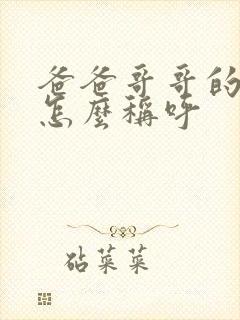 爸爸哥哥的
怎麼稱呼
砧菜菜